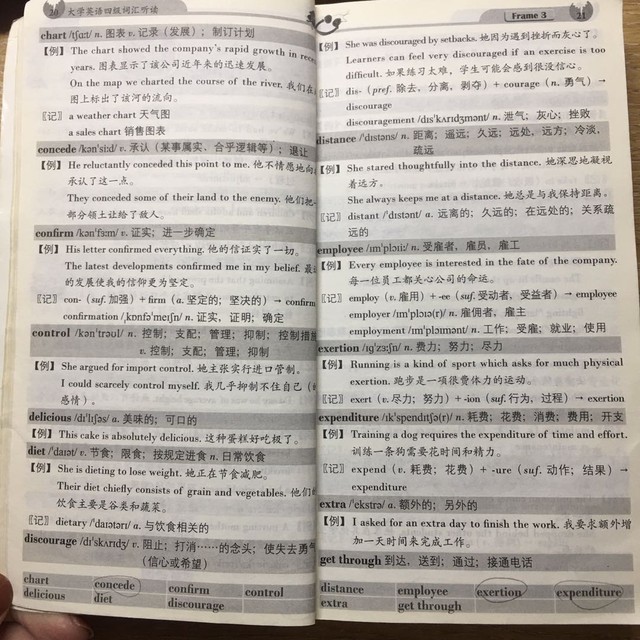 20 大学英语四级词汇听读
chart /tʃɑːt/ n. 图表 v. 记录（发展）；制订计划
【例】 The chart showed the company's rapid growth in
years. 图表显示了该公司近年来的迅速发展。
On the map we charted the course of the river. 我们在
图上标出了该河的流向。
〖记〗 a weather chart 天气图
a sales chart 销售图表
concede /kənˈsiːd/ v. 承认（某事属实、合乎逻辑等）；退让
【例】 He reluctantly conceded this point to me. 他不情愿地向
承认了这一点。
They conceded some of their land to the enemy. 他们把
部分领土让给了敌人。
confirm /kənˈfɜːm/ v. 证实；进一步确定
【例】 His letter confirmed everything. 他的信证实了一切。
The latest developments confirmed me in my belief.
的发展使我的信仰更为坚定。
〖记〗 con- (suf. 加强) + firm (a. 坚定的；坚决的) → confirm
confirmation /ˌkɒnfəˈmeɪʃn/ n. 证实，证明；确定
control /kənˈtrəʊl/ n. 控制；支配；管理；抑制；控制措施
v. 控制；支配；管理；抑制
【例】 She argued for import control. 她主张实行进口管制。
I could scarcely control myself. 我几乎抑制不住自己（
感情）。
delicious /dɪˈlɪʃəs/ a. 美味的；可口的
【例】 This cake is absolutely delicious. 这种蛋糕好吃极了。
diet /ˈdaɪət/ v. 节食；限食；按规定进食 n. 日常饮食
【例】 She is dieting to lose weight. 她正在节食减肥。
Their diet chiefly consists of grain and vegetables. 他们的
饮食主要是谷类和蔬菜。
〖记〗 dietary /ˈdaɪətərɪ/ a. 与饮食相关的
discourage /dɪˈskʌrɪdʒ/ v. 阻止；打消……的念头；使失去勇气
（信心或希望）
chart concede confirm control
delicious diet discourage
Frame 3 21
【例】 She was discouraged by setbacks. 她因为遇到挫折而灰心了。
Learners can feel very discouraged if an exercise is too
difficult. 如果练习太难，学生可能会感到很没信心。
〖记〗 dis- (pref. 除去，分离，剥夺) + courage (n. 勇气) →
discourage
discouragement /dɪsˈkʌrɪdʒmənt/ n. 泄气；灰心；挫败
distance /ˈdɪstəns/ n. 距离；遥远；久远；远处，远方；冷淡，
疏远
【例】 She stared thoughtfully into the distance. 她深思地凝视
着远方。
She always keeps me at a distance. 她总是与我保持距离。
〖记〗 distant /ˈdɪstənt/ a. 远离的；久远的；在远处的；关系疏
远的
employee /ɪmˈplɔɪiː/ n. 受雇者，雇员，雇工
【例】 Every employee is interested in the fate of the company.
每一位员工都关心公司的命运。
〖记〗 employ (v. 雇用) + -ee (suf. 受动者，受益者) → employee
employer /ɪmˈplɔɪə(r)/ n. 雇佣者，雇主
employment /ɪmˈplɔɪmənt/ n. 工作；受雇；就业；使用
exertion /ɪgˈzɜːʃn/ n. 费力；努力；尽力
【例】 Running is a kind of sport which asks for much physical
exertion. 跑步是一项很费体力的运动。
〖记〗 exert (v. 尽力；努力) + -ion (suf. 行为，过程) → exertion
expenditure /ɪkˈspendɪtʃə(r)/ n. 耗费；花费；消费；费用；开支
【例】 Training a dog requires the expenditure of time and effort.
训练一条狗需要花时间和精力。
〖记〗 expend (v. 耗费；花费) + -ure (suf. 动作；结果) →
expenditure
extra /ˈekstrə/ a. 额外的；另外的
【例】 I asked for an extra day to finish the work. 我要求额外增
加一天时间来完成工作。
get through 到达，送到；通过；接通电话
distance employee exertion expenditure
extra get through